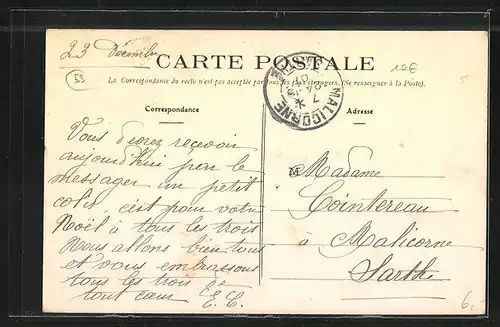 23 Décembre
CARTE POSTALE
La Correspondance du recto n'est pas acceptée par tous les pays étrangers. (Se renseigner à la Poste).
Correspondance
Adresse
MALICORNE
7
24-12
07
SARTHE
10€
53
Vous devez recevoir
aujourd'hui par le
messager un petit
colis, c'est pour votre
Noël à tous les trois
Nous allons bien tous
et vous embrassons
tous les trois de
tout cœur E. C.
M
Madame
Cointereau
à Malicorne
Sarthe
6,-